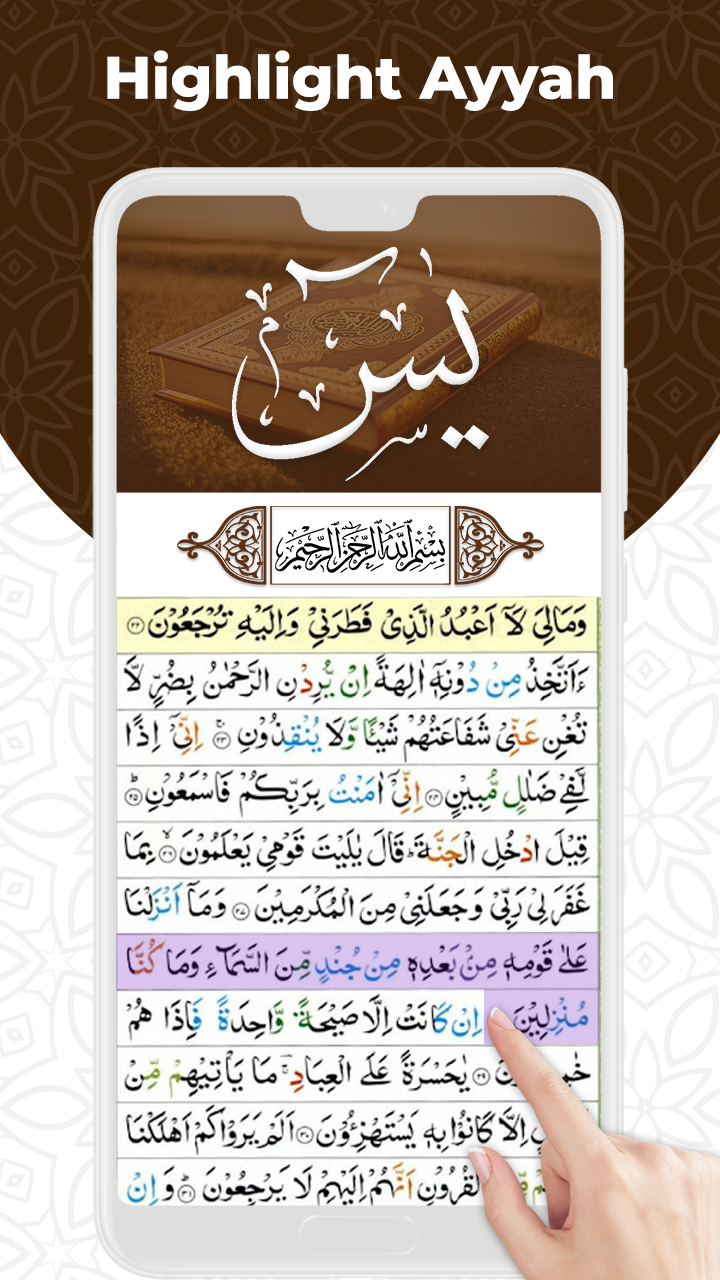 Highlight Ayyah
يٰسٓ
بِسْمِ اللّٰهِ الرَّحْمٰنِ الرَّحِيْمِ
وَمَالِىَ لَاۤ اَعْبُدُ الَّذِىْ فَطَرَنِىْ وَاِلَيْهِ تُرْجَعُوْنَ ۝۲۲
ءَاَتَّخِذُ مِنْ دُوْنِهٖۤ اٰلِهَةً اِنْ يُّرِدْنِ الرَّحْمٰنُ بِضُرٍّ لَّا
تُغْنِ عَنِّىْ شَفَاعَتُهُمْ شَيْـًٔا وَّلَا يُنْقِذُوْنِ ۝۲۳ اِنِّىْۤ اِذًا
لَّفِىْ ضَلٰلٍ مُّبِيْنٍ ۝۲۴ اِنِّىْۤ اٰمَنْتُ بِرَبِّكُمْ فَاسْمَعُوْنِ ۝۲۵
قِيْلَ ادْخُلِ الْجَنَّةَ ؕ قَالَ يٰلَيْتَ قَوْمِىْ يَعْلَمُوْنَ ۝۲۶ بِمَا
غَفَرَ لِىْ رَبِّىْ وَجَعَلَنِىْ مِنَ الْمُكْرَمِيْنَ ۝۲۷ وَمَاۤ اَنْزَلْنَا
عَلٰى قَوْمِهٖ مِنْۢ بَعْدِهٖ مِنْ جُنْدٍ مِّنَ السَّمَآءِ وَمَا كُنَّا
مُنْزِلِيْنَ اِنْ كَانَتْ اِلَّا صَيْحَةً وَّاحِدَةً فَاِذَا هُمْ
۝۲۹ يٰحَسْرَةً عَلَى الْعِبَادِ ۚ مَا يَاْتِيْهِمْ مِّنْ
اِلَّا كَانُوْا بِهٖ يَسْتَهْزِءُوْنَ ۝۳۰ اَلَمْ يَرَوْا كَمْ اَهْلَكْنَا
الْقُرُوْنِ اَنَّهُمْ اِلَيْهِمْ لَا يَرْجِعُوْنَ ۝۳۱ وَاِنْ